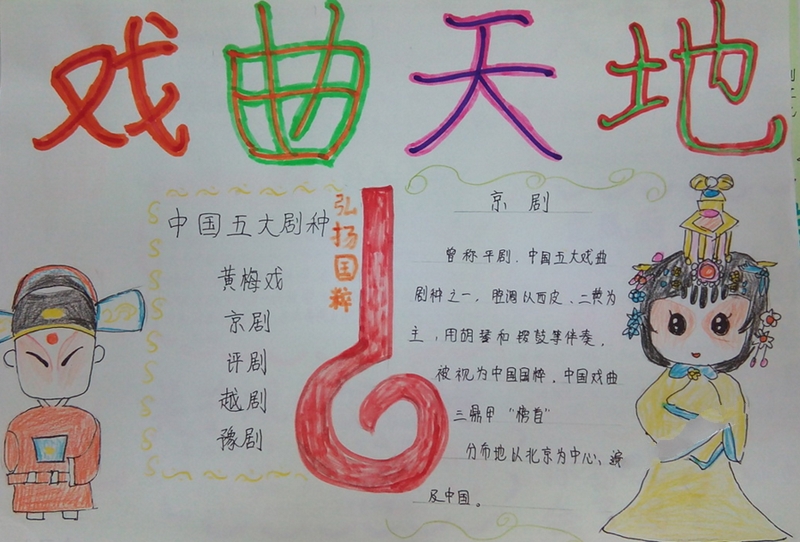 戏曲天地
中国五大剧种
黄梅戏
京剧
评剧
越剧
豫剧
弘扬国粹
京剧
曾称平剧，中国五大戏曲
剧种之一，腔调以西皮、二黄为
主，用胡琴和锣鼓等伴奏，
被视为中国国粹，中国戏曲
三鼎甲“榜首”
分布地以北京为中心、遍
及中国。